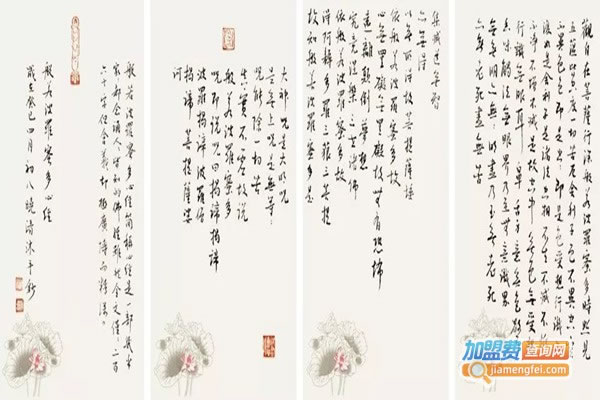 觀自在菩薩行深般若波羅蜜多時照見
五蘊皆空度一切苦厄舍利子色不異空
不異色色即是空空即是色受想行識
復如是舍利子是諸法空相不生不滅不垢
不淨不增不減是故空中無色無受想
行識無眼耳鼻舌身意無色聲
香味觸法無眼界乃至無意識界
無無明亦無無明盡乃至無老死
亦無老死盡無苦
集滅道無智
亦無得
以無所得故菩提薩埵
依般若波羅蜜多故
心無罣礙無罣礙故無有恐怖
遠離顛倒夢想
究竟涅槃三世諸佛
依般若波羅蜜多故
得阿耨多羅三藐三菩提
故知般若波羅蜜多是
大神咒是大明咒
是無上咒是無等等
咒能除一切苦
真實不虛故說
般若波羅蜜多
咒即說咒曰揭諦揭諦
波羅揭諦波羅僧
揭諦菩提薩婆
訶
般若波羅蜜多心經簡稱心經是一部
六十字
般若波羅蜜多心經
歲在癸巳四月初八曉清沐手
加盟费查询网
jiamengfei.com